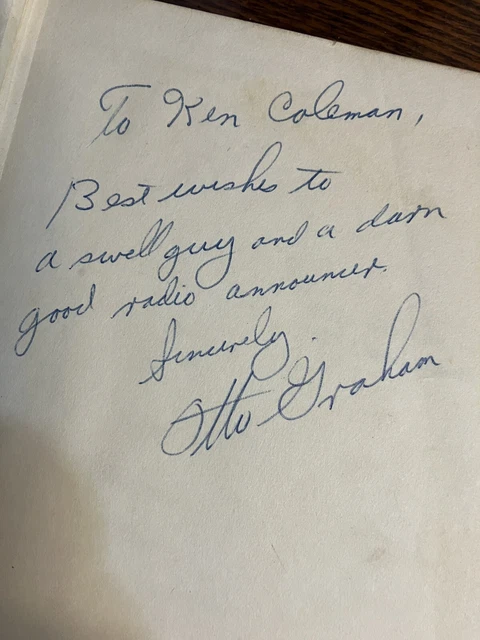 To Ken Coleman,
Best wishes to
a swell guy and a darn
good radio announcer.
Sincerely.
Otto Graham